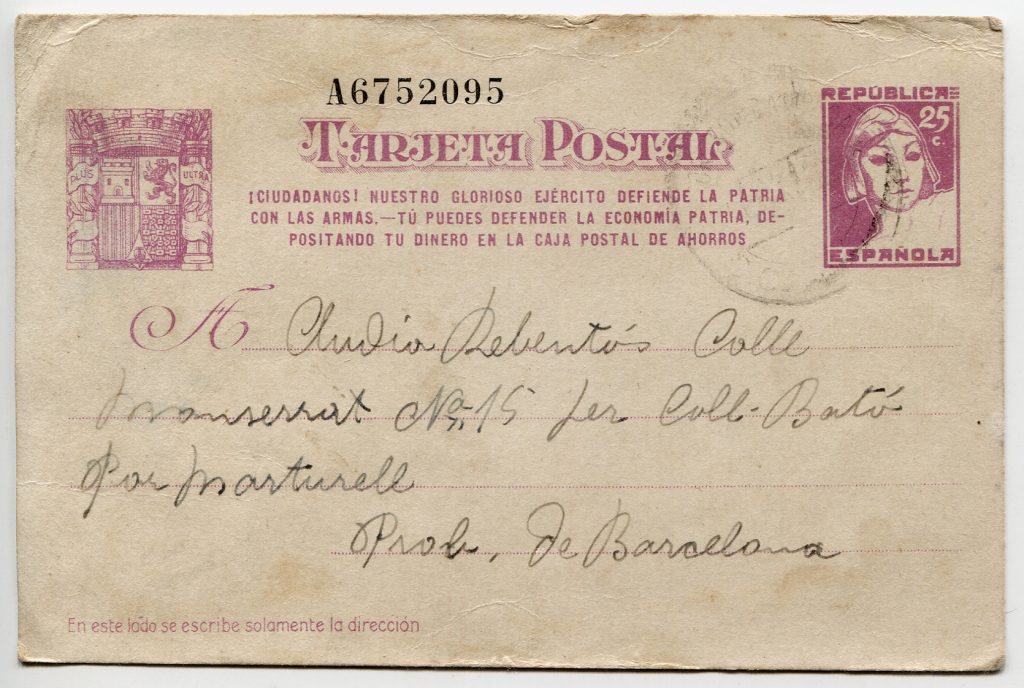 A6752095
TARJETA POSTAL
PLUS ULTRA
¡CIUDADANOS! NUESTRO GLORIOSO EJÉRCITO DEFIENDE LA PATRIA
CON LAS ARMAS.—TÚ PUEDES DEFENDER LA ECONOMÍA PATRIA, DE-
POSITANDO TU DINERO EN LA CAJA POSTAL DE AHORROS
REPÚBLICA
25 c.
ESPAÑOLA
A Cludia Rebentós Calle
Monserrat No. 15 per Coll-Bató
Por Marturell
Prob, de Barcelona
En este lado se escribe solamente la dirección